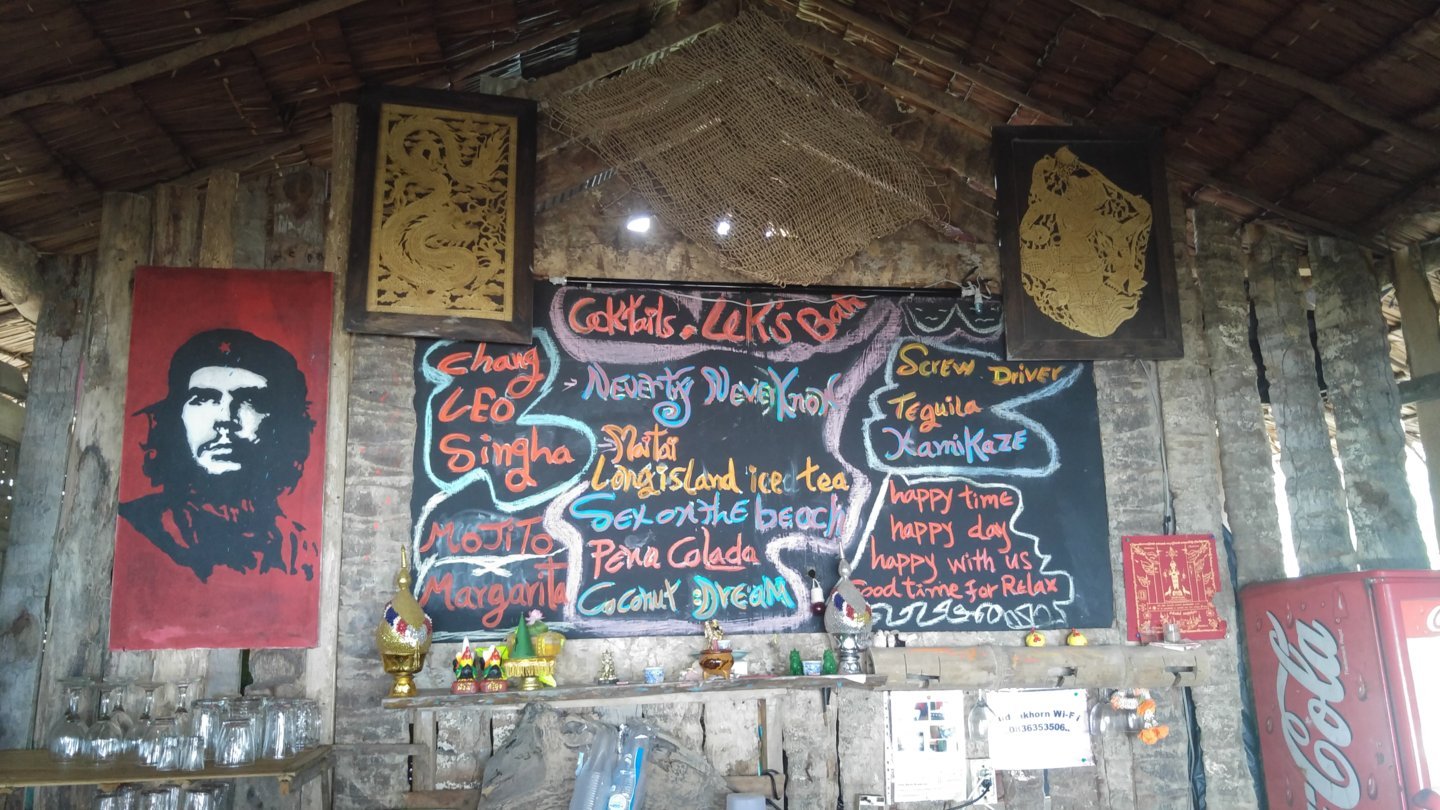 Cocktails. Lek's Bar
Chang
LEO
Singha
MOJITO
Margarita
Neverty NeverKnow
Maitai
Long island ice tea
Sex on the beach
Pena Colada
Coconut DREAM
SCREW DRIVER
Teguila
KamiKAZE
happy time
happy day
happy with us
Good time for Relax
khorn Wi-Fi
0836353506..
Coca-Cola